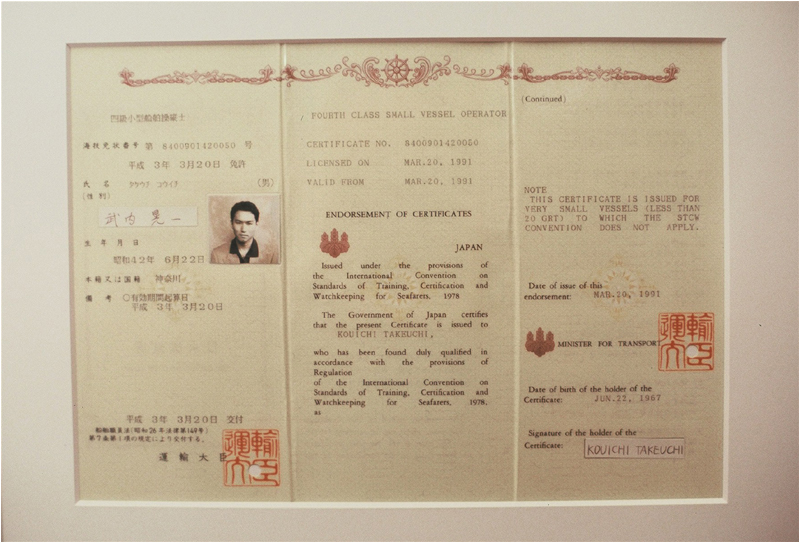 四級小型船舶操縦士
海技免状番号 第 8400901420050 号
平成 3年 3月20日 免許
氏 名 タケウチ コウイチ (男)
(性別)
武内 晃一
生 年 月 日
昭和42年 6月22日
本籍又は国籍 神奈川
備 考 ○有効期間起算日
平成 3年 3月20日
平成 3年 3月20日 交付
船舶職員法(昭和26年法律第149号)
第7条第1項の規定により交付する。
運 輸 大 臣
FOURTH CLASS SMALL VESSEL OPERATOR
CERTIFICATE NO. 8400901420050
LICENSED ON MAR.20, 1991
VALID FROM MAR.20, 1991
ENDORSEMENT OF CERTIFICATES
JAPAN
Issued under the provisions of
the International Convention on
Standards of Training, Certification and
Watchkeeping for Seafarers, 1978
The Government of Japan certifies
that the present Certificate is issued to
KOUICHI TAKEUCHI,
who has been found duly qualified in
accordance with the provisions of
Regulation
of the International Convention on
Standards of Training, Certification and
Watchkeeping for Seafarers, 1978,
as
(Continued)
NOTE
THIS CERTIFICATE IS ISSUED FOR
VERY SMALL VESSELS (LESS THAN
20 GRT) TO WHICH THE STCW
CONVENTION DOES NOT APPLY.
Date of issue of this
endorsement: MAR.20, 1991
MINISTER FOR TRANSPORT
Date of birth of the holder of the
Certificate: JUN.22, 1967
Signature of the holder of the
Certificate: KOUICHI TAKEUCHI